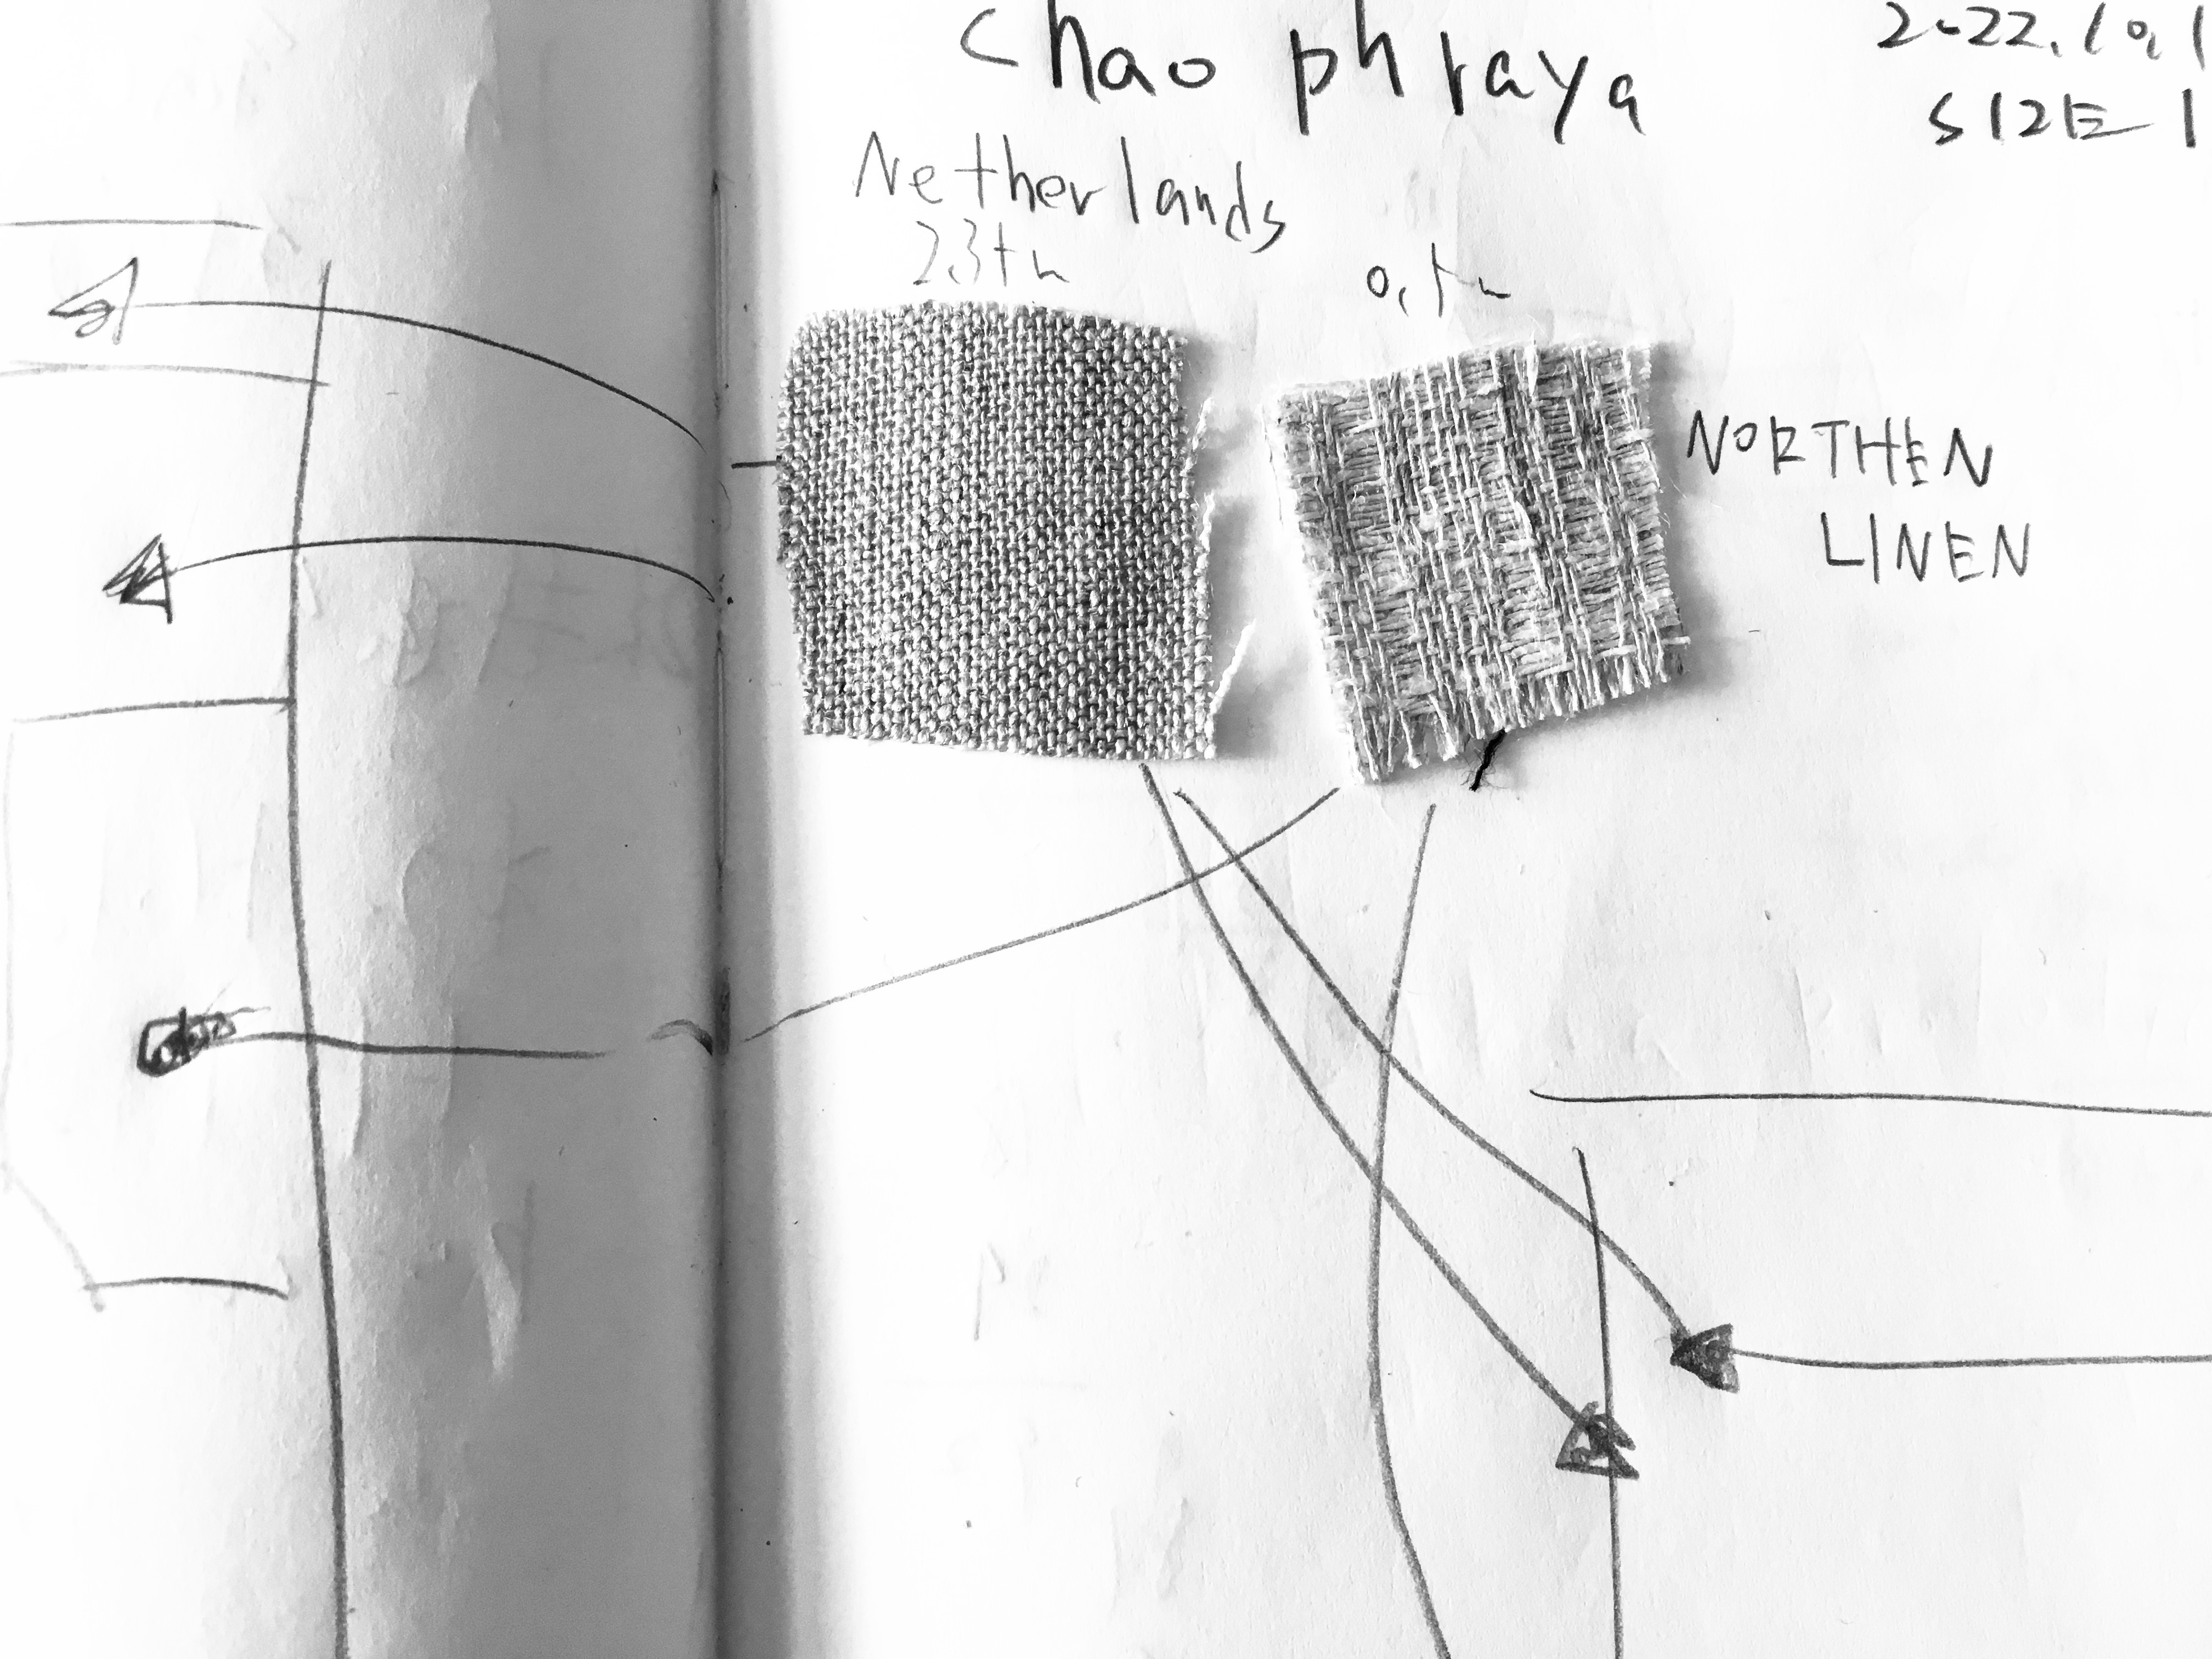 chao phraya
2022.10.1
SIZE 1
Netherlands
2.3tn
NORTHEN
LINEN